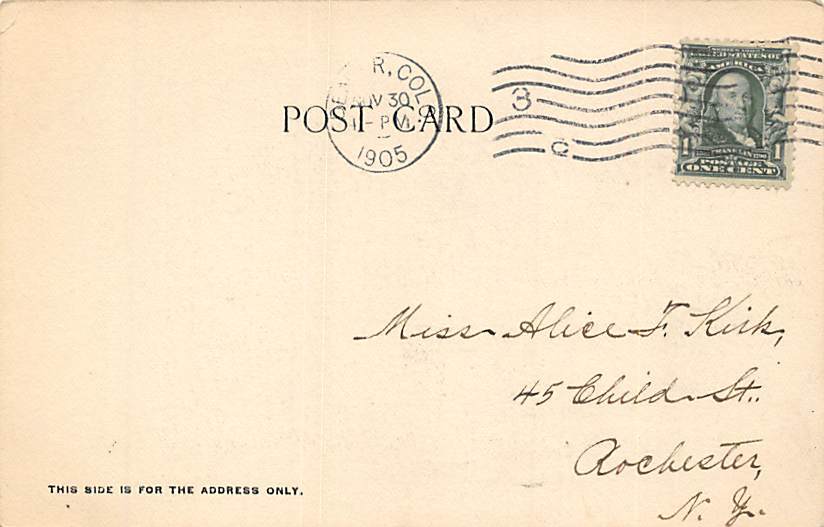 R, COLO.
NOV 30
- PM
1905
POST CARD
3
C
SERIES 1902
UNITED STATES OF
AMERICA
FRANKLIN
1 1
POSTAGE
ONE CENT
Miss Alice F. Kirk,
45 Child St.
Rochester,
N. Y.
THIS SIDE IS FOR THE ADDRESS ONLY.